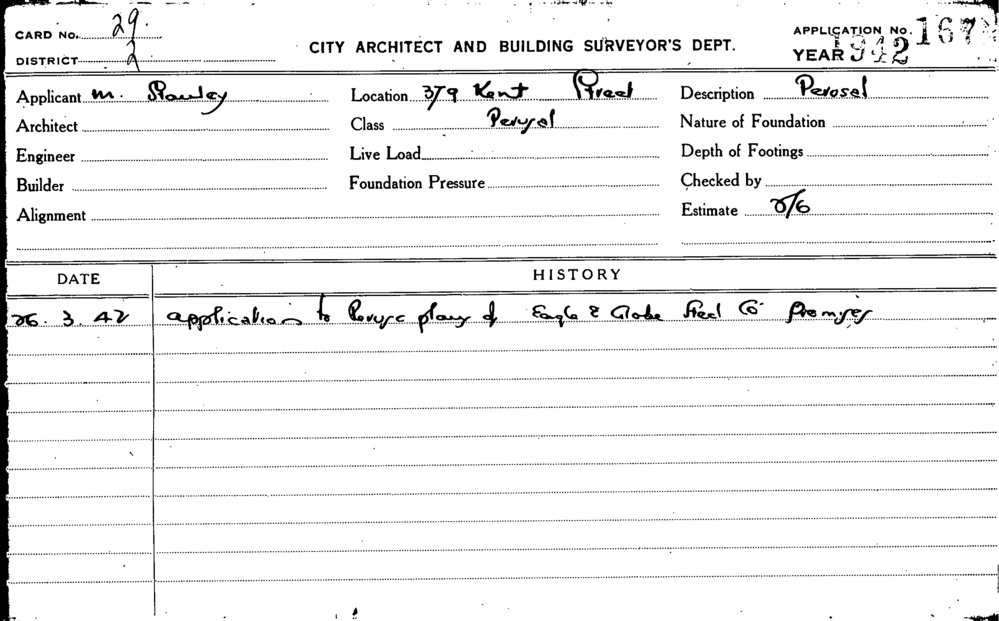 CARD No. 29.
DISTRICT 2
CITY ARCHITECT AND BUILDING SURVEYOR'S DEPT.
APPLICATION No. 167
YEAR 1942
Applicant M. Stanley
Location 379 Kent Street
Description Perusal
Architect
Class Perusal
Nature of Foundation
Engineer
Live Load
Depth of Footings
Builder
Foundation Pressure
Checked by
Alignment
Estimate 2/6
DATE HISTORY
26. 3. 42 application to Peruse plans of Eagle & Globe Steel Co Premises